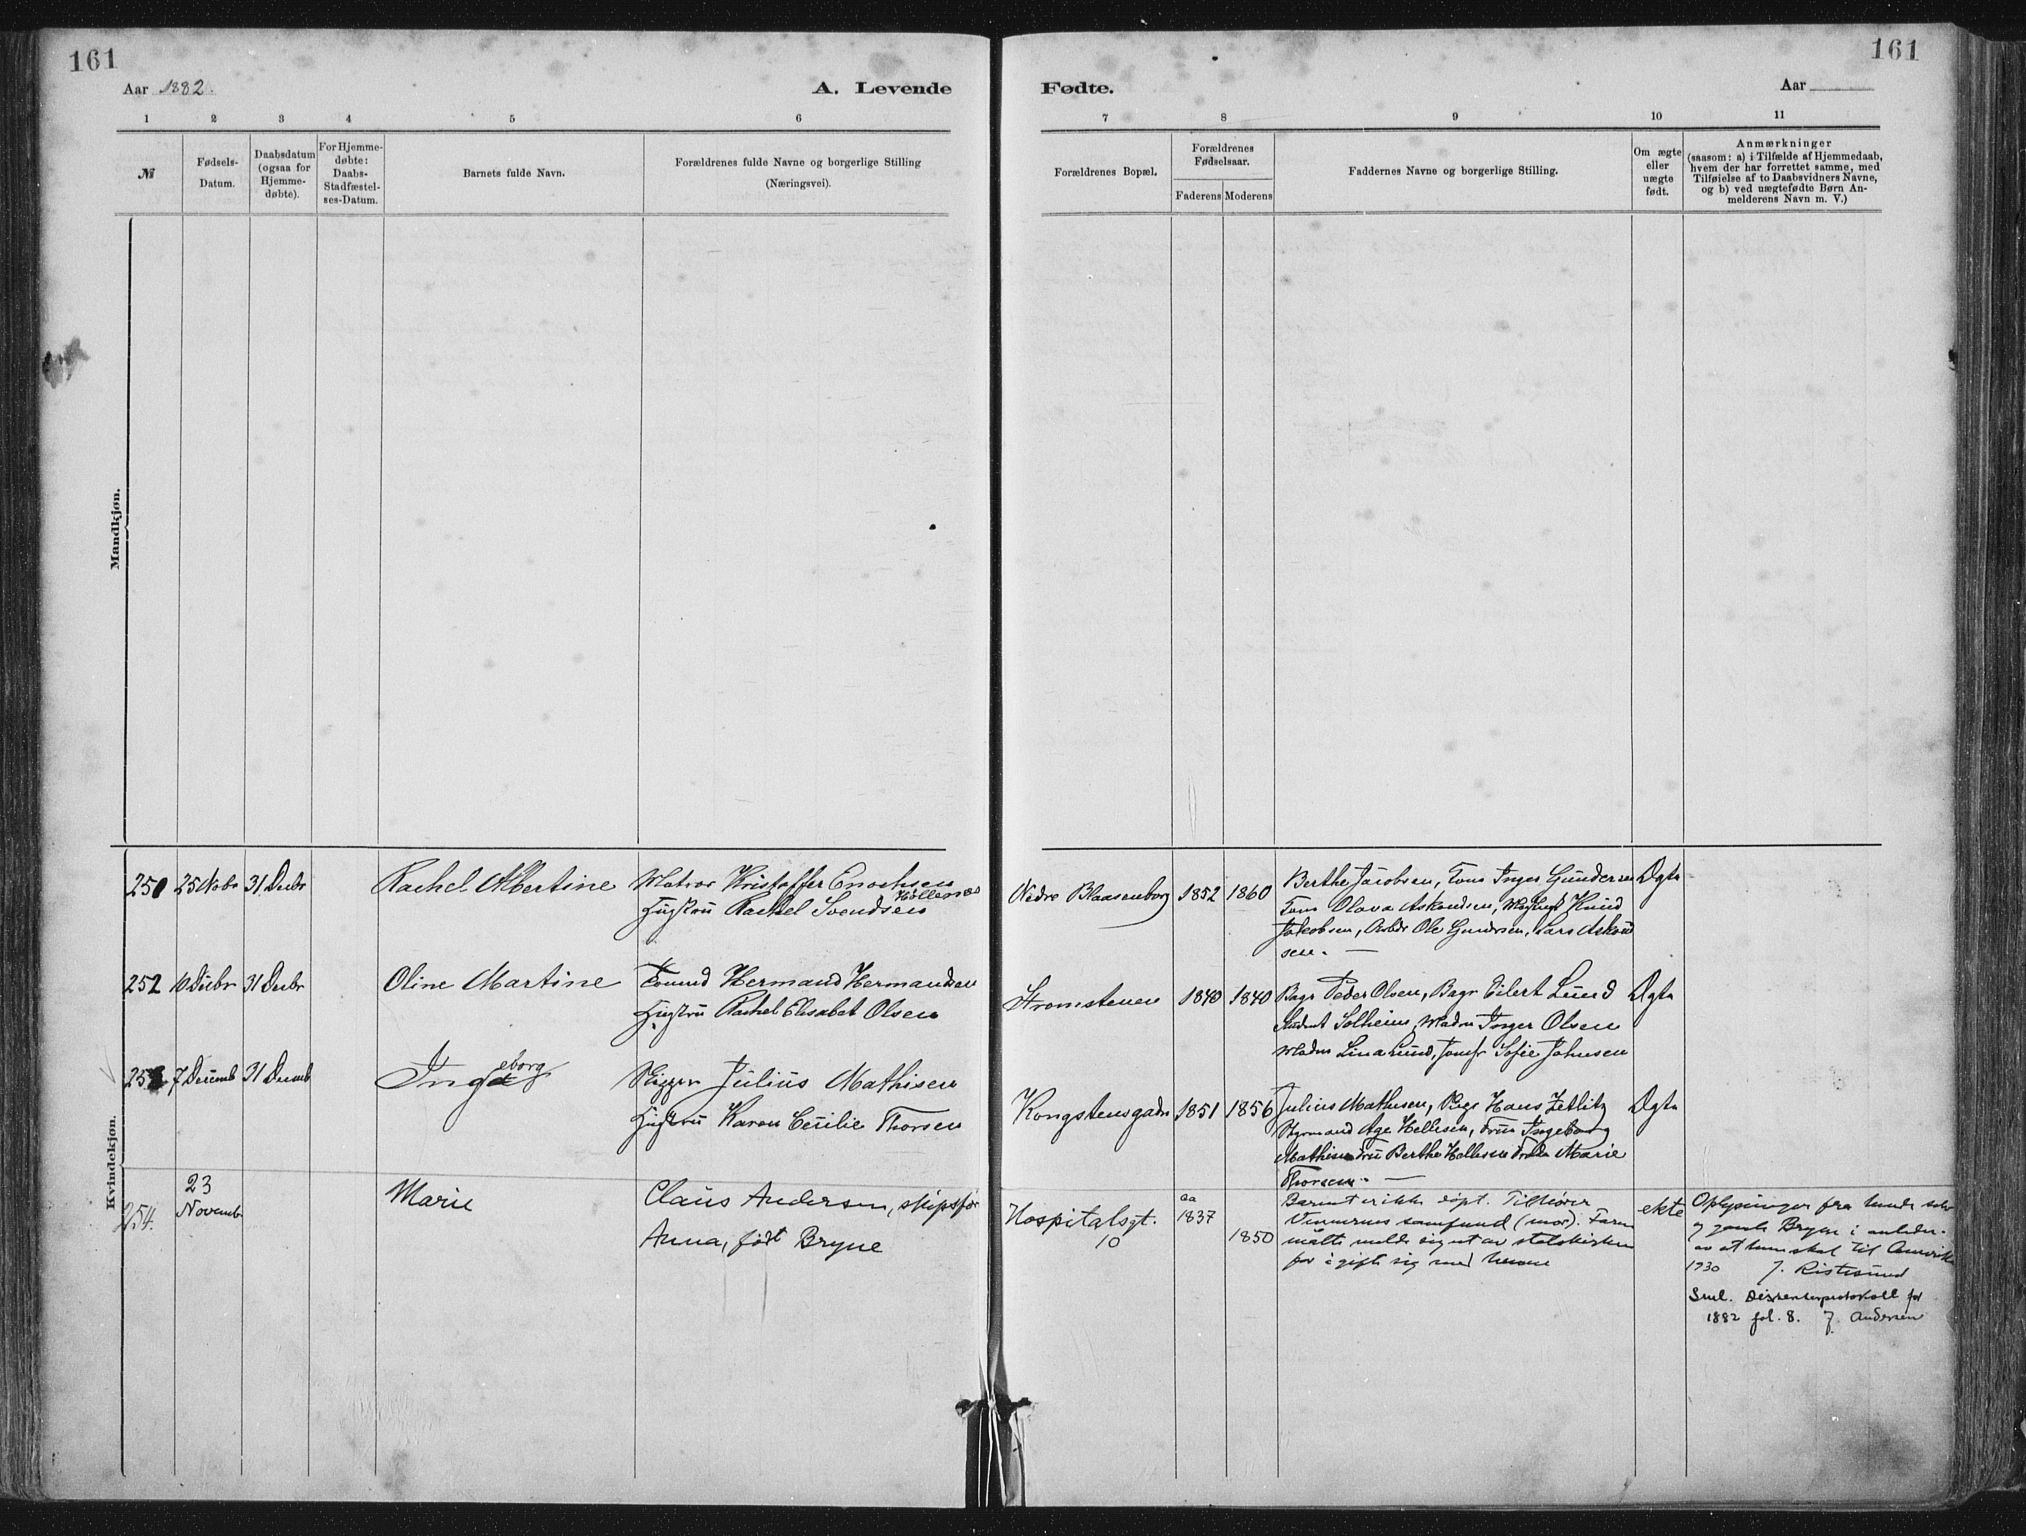 161
161
Aar 1882.
A. Levende
Fødte.
Aar
1 2 3 4 5 6
7 8 9 10 11
№
Fødsels-
Datum.
Daabsdatum
(ogsaa for
Hjemme-
døbte).
For Hjemme-
døbte:
Daabs-
Stadfæstel-
ses-Datum.
Barnets fulde Navn.
Forældrenes fulde Navne og borgerlige Stilling
(Næringsvei).
Forældrenes Bopæl.
Forældrenes
Fødselsaar.
Faderens Moderens
Faddernes Navne og borgerlige Stilling.
Om ægte
eller
uægte
født.
Anmærkninger
(saasom: a) i Tilfælde af Hjemmedaab,
hvem der har forrettet samme, med
Tilføielse af to Daabsvidners Navne,
og b) ved uægtefødte Børn An-
melderens Navn m. V.)
Mandkjøn.
251 25 Nobr 31 Decbr
Rachel Albertine
Matros Kristoffer Enochsen
Hustru Rachel Svendsen
Nedre Blaasenborg 1852 1860
Berthe Jacobsen, Inger Gundersen
Olava
Jakobsen, Ole Gundersen, Lars
sen.
Ægte
252 10 Decbr 31 Decbr
Oline Martine
Hermand Hermandsen
Hustru Rachel Elisabet Olsen
Strømstenen 1840 1840
Peder Olsen, Eilert Lund
Solheim, Madm Inger Olsen
Madm Lina Lund, Jomfr Sofie Johnsen
Ægte
253 7 Decemb 31 Decemb
Ingeborg
Rigger Julius Mathisen
Hustru Karen Cecilie Thorsen
Kongstensgaden 1851 1856
Julius Mathisen, Hans Zetlitz
Styrmand Age Hellesen, Fru Ingeborg
Mathisen Fru Berthe Hellesen Marie
Thorsen.
Ægte
Kvindekjøn.
254. 23
Novemb
Marie
Claus Andersen, skipsfør
Anna, født Bryne
Hospitalsgt.
10
ca
1837
1850
Barnet er ikke døpt. Tilhører
Vennernes samfund (mor). Faren
måtte melde sig ut av statskirken
for å gifte sig med henne
ekte
Oplysninger fra hende selv
og Bryne i anledn.
av at hun skal til Amerika
1930
Sml. Dissenterprotokoll for
1882 fol. 8. J. Andersen